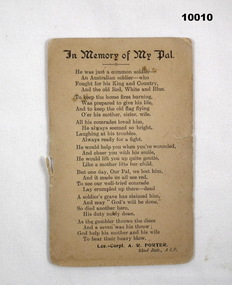 10010
In Memory of My Pal.
He was just a common soldier
An Australian soldier—who
Fought for his King and Country,
And the old Red, White and Blue.
To keep the home fires burning,
Was prepared to give his life,
And to keep the old flag flying
O'er his mother, sister, wife.
All his comrades loved him,
He always seemed so bright,
Laughing at his troubles,
Always ready for a fight.
He would help you when you're wounded,
And cheer you with his smile,
He would lift you up quite gentle,
Like a mother lifts her child.
But one day, Our Pal, we lost him,
And it made us all see red,
To see our well-tried comrade
Lay crumpled up there—dead
A soldier's grave has claimed him,
And may "God's will be done,"
So died another hero,
His duty nobly done.
As the gambler throws the dice
And a seven was his throw;
God help his mother and his wife
To bear their heavy blow.
Lce.-Corpl. A. V. PORTER,
Batt., A.I.F.